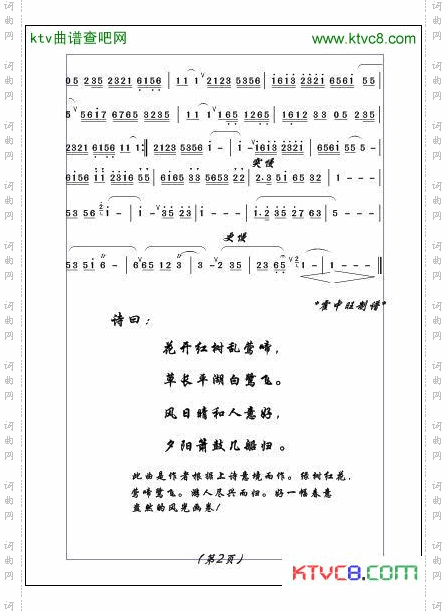 ktv曲谱查吧网
www.ktvc8.com
05 235 2321 6156 | 11 1 2123 5356 | 1613 2321 6561 55
5 5617 6765 3235 | 1 1 165 1265 | 1612 33 05 235
2321 6156 11 1 :‖ 2123 5356 1 - | 1 - 1613 2321 | 6561 55
突慢
6156 11 23165 55 | 6165 33 5653 22 | 2·3 51 65 32 | 1 - - -
53 56 1 - | 1 - 35 23 | 1 - - - | 1·2 35 27 63 | 5 - - -
更慢
53 51 6 - | 665 12 3 | 3 - 2 35 | 35 23 65 1 - | 1 - - - ‖
"霍中旺制谱"
诗曰：
花开红树乱莺啼，
草长平湖白鹭飞。
风日晴和人意好，
夕阳箫鼓几船归。
此曲是作者根据上诗意境而作。绿树红花，
莺啼鹭飞。游人尽兴而归。好一幅春意
盎然的风光画卷！
（第2页）
KTVC8.COM
词曲网